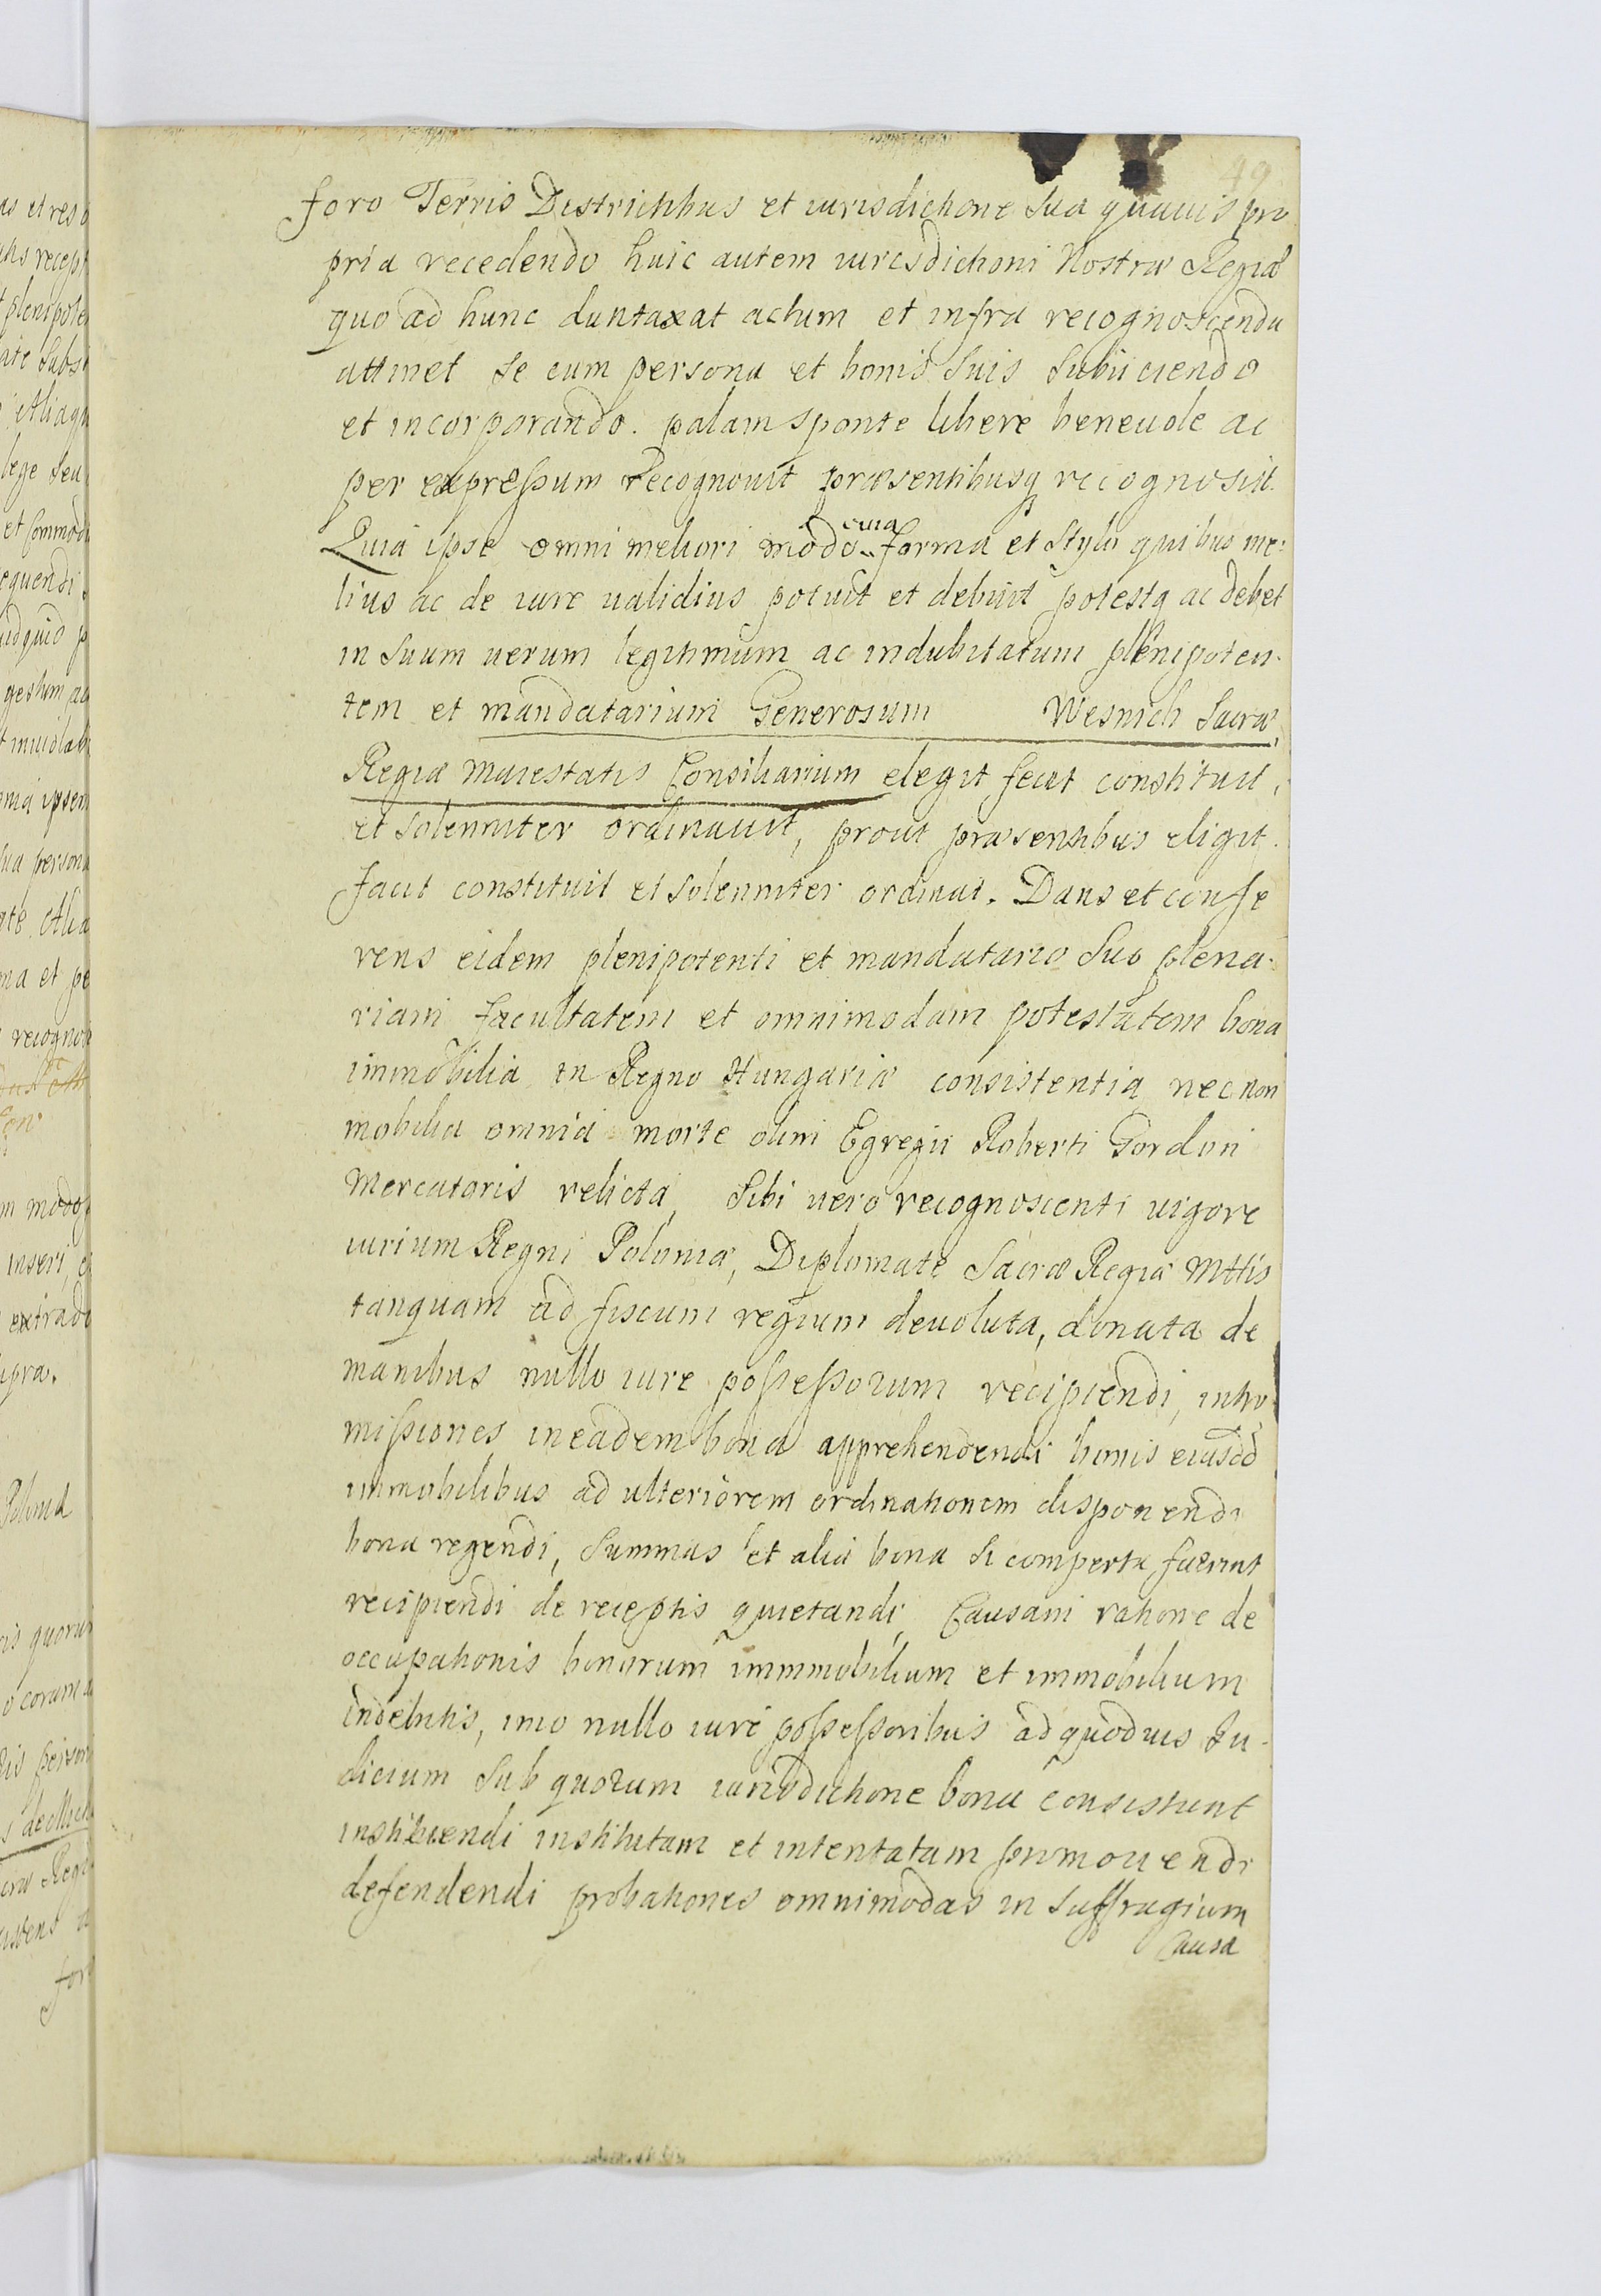 49
foro Terris Districtibus et iurisdictione sua quauis pro
pria recedendo huic autem iurisdictioni Nostræ Regiæ
quo ad hunc duntaxat actum et infra recognoscenda
attinet se cum persona et bonis suis subiiciendo
et incorporando. palam sponte libere beneuole ac
per expressum recognouit præsentibusq recognoscit.
Quia ipse omni meliori modo uia forma et stylo quibus me:
lius ac de iure ualidius potuit et debuit potestq ac debet
in suum uerum legitimum ac indubitatum plenipoten-
tem et mandatarium Generosum Wesnich Sacræ
Regiæ Maiestatis Consiliarium elegit fecit constituit,
et solenniter ordinauit, prout præsentibus eligit.
facit constituit et solenniter ordinat. Dans et confe
rens eidem plenipotenti et mandatario suo plena-
riam facultatem et omnimodam potestatem bona
immobilia in Regno Hungariæ consistentia nec non
mobilia omnia morte olim Egregii Roberti Gordon
Mercatoris relicta, sibi uero recognoscenti uigore
iurium Regni Poloniæ, Diplomate Sacræ Regiæ Mttis
tanquam ad fiscum regium deuoluta, donata de
manibus nullo iure possessorum recipiendi, intro
missiones in eadem bona apprehendendi bonis eiusdd
immobilibus ad ulteriorem ordinationem disponendi
bona regendi, summas et alia bona si comperta fuerint
recipiendi de receptis quietandi, Causam ratione de
occupationis bonorum immmobilium et immobilium
indebitis, imo nullo iure possessoribus ad quoduis Iu-
dicium sub quorum iurisdictione bona consistunt
instituendi institutam et intentatam promouendi
defendendi probationes omnimodas in suffragium
Causa